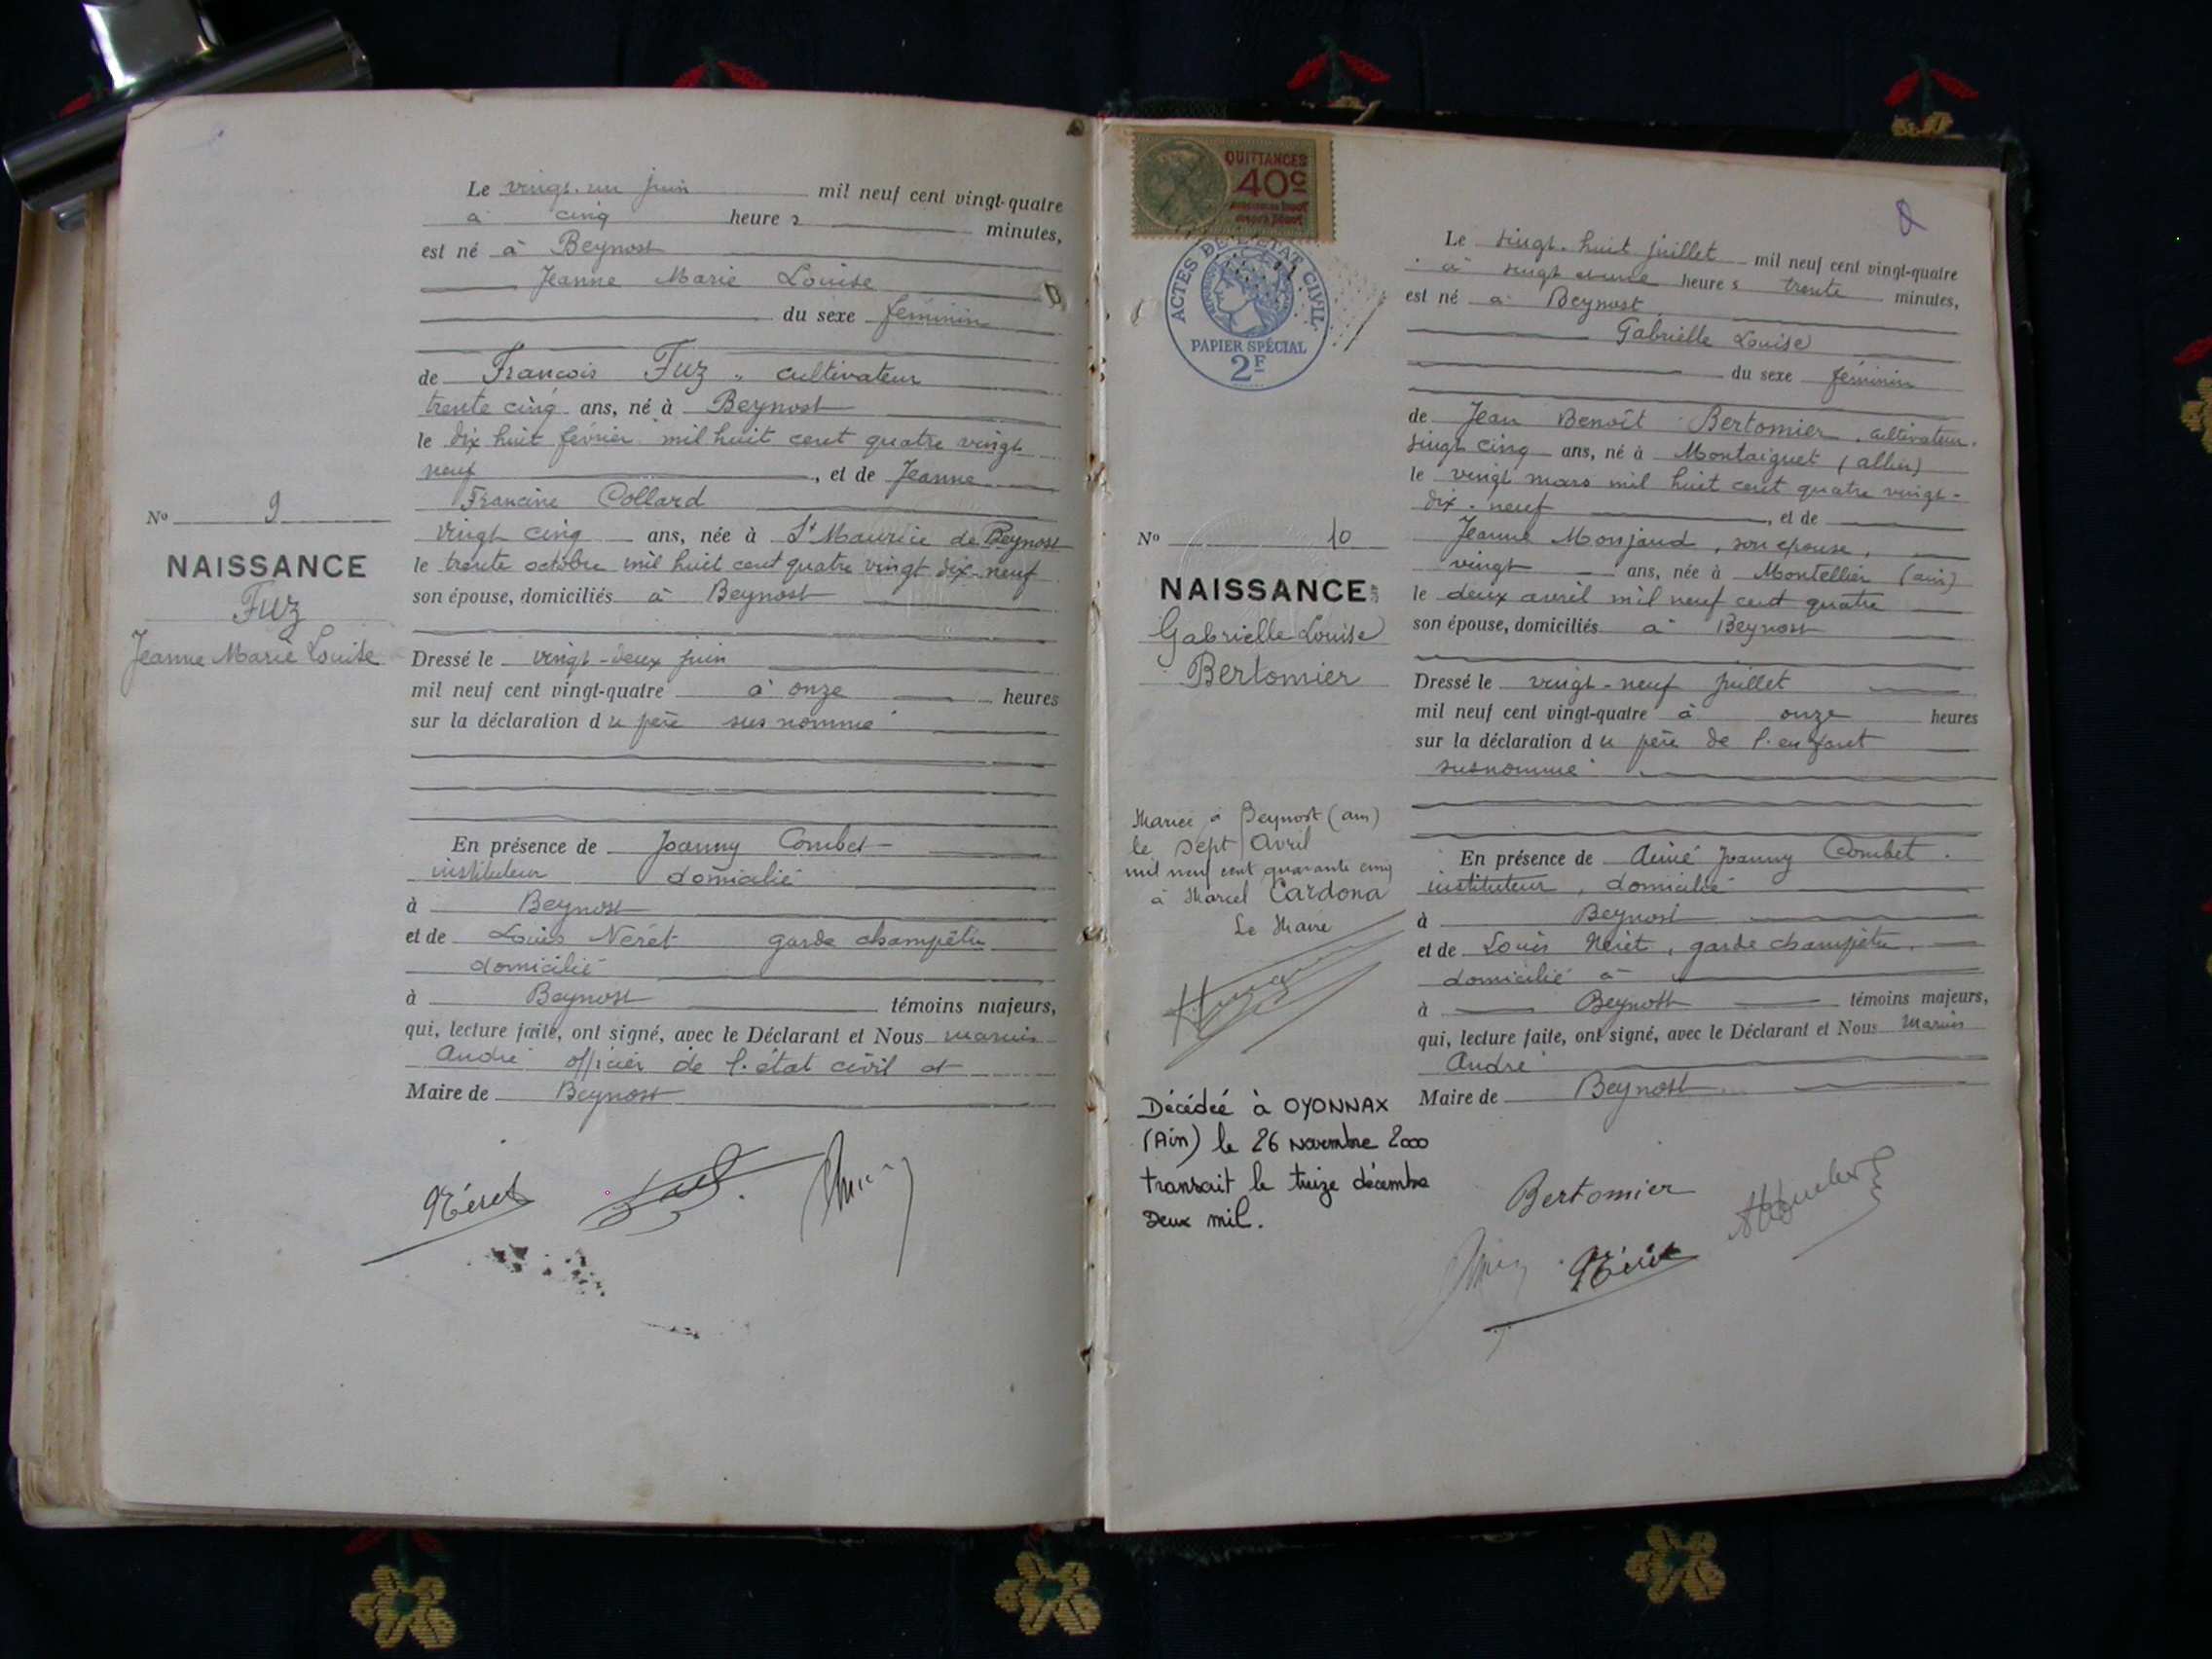 Le vingt-un juin mil neuf cent vingt-quatre
à cinq heures minutes,
est né à Beynost
Jeanne Marie Louise
du sexe féminin
de François Fuz cultivateur
trente cinq ans, né à Beynost
le dix huit février mil huit cent quatre vingt
neuf, et de Jeanne
Francine Collard
vingt cinq ans, née à St Maurice de Beynost
le trente octobre mil huit cent quatre vingt dix-neuf
son épouse, domiciliés à Beynost
Dressé le vingt-deux juin
mil neuf cent vingt-quatre à onze heures
sur la déclaration du père susnommé
En présence de Joanny Combet
instituteur domicilié
à Beynost
et de Louis Néret garde champêtre
domicilié
à Beynost témoins majeurs,
qui, lecture faite, ont signé, avec le Déclarant et Nous Marius
André officier de l'état civil et
Maire de Beynost
Néret
No 9
NAISSANCE
Fuz
Jeanne Marie Louise
QUITTANCES
40c
ACTES DE L'ÉTAT CIVIL
PAPIER SPÉCIAL
2F
Le vingt-huit juillet mil neuf cent vingt-quatre
à vingt et une heures trente minutes,
est né à Beynost
Gabrielle Louise
du sexe féminin
de Jean Benoît Bertomier, cultivateur.
vingt cinq ans, né à Montaiguet (allier)
le vingt mars mil huit cent quatre vingt-
dix-neuf, et de
Jeanne Monjaud, son épouse,
vingt ans, née à Montellier (ain)
le deux avril mil neuf cent quatre
son épouse, domiciliés à Beynost
Dressé le vingt-neuf juillet
mil neuf cent vingt-quatre à onze heures
sur la déclaration du père de l'enfant
susnommé
En présence de Aimé Joanny Combet.
instituteur, domicilié
à Beynost
et de Louis Néret, garde champêtre,
domicilié à
à Beynost témoins majeurs,
qui, lecture faite, ont signé, avec le Déclarant et Nous Marius
André
Maire de Beynost
Bertomier
Néret
No 10
NAISSANCE
Gabrielle Louise
Bertomier
Mariée à Beynost (ain)
le sept Avril
mil neuf cent quarante cinq
à Marcel Cardona
Le Maire
Décédée à OYONNAX
(Ain) le 26 novembre 2000
transcrit le treize décembre
Deux mil.